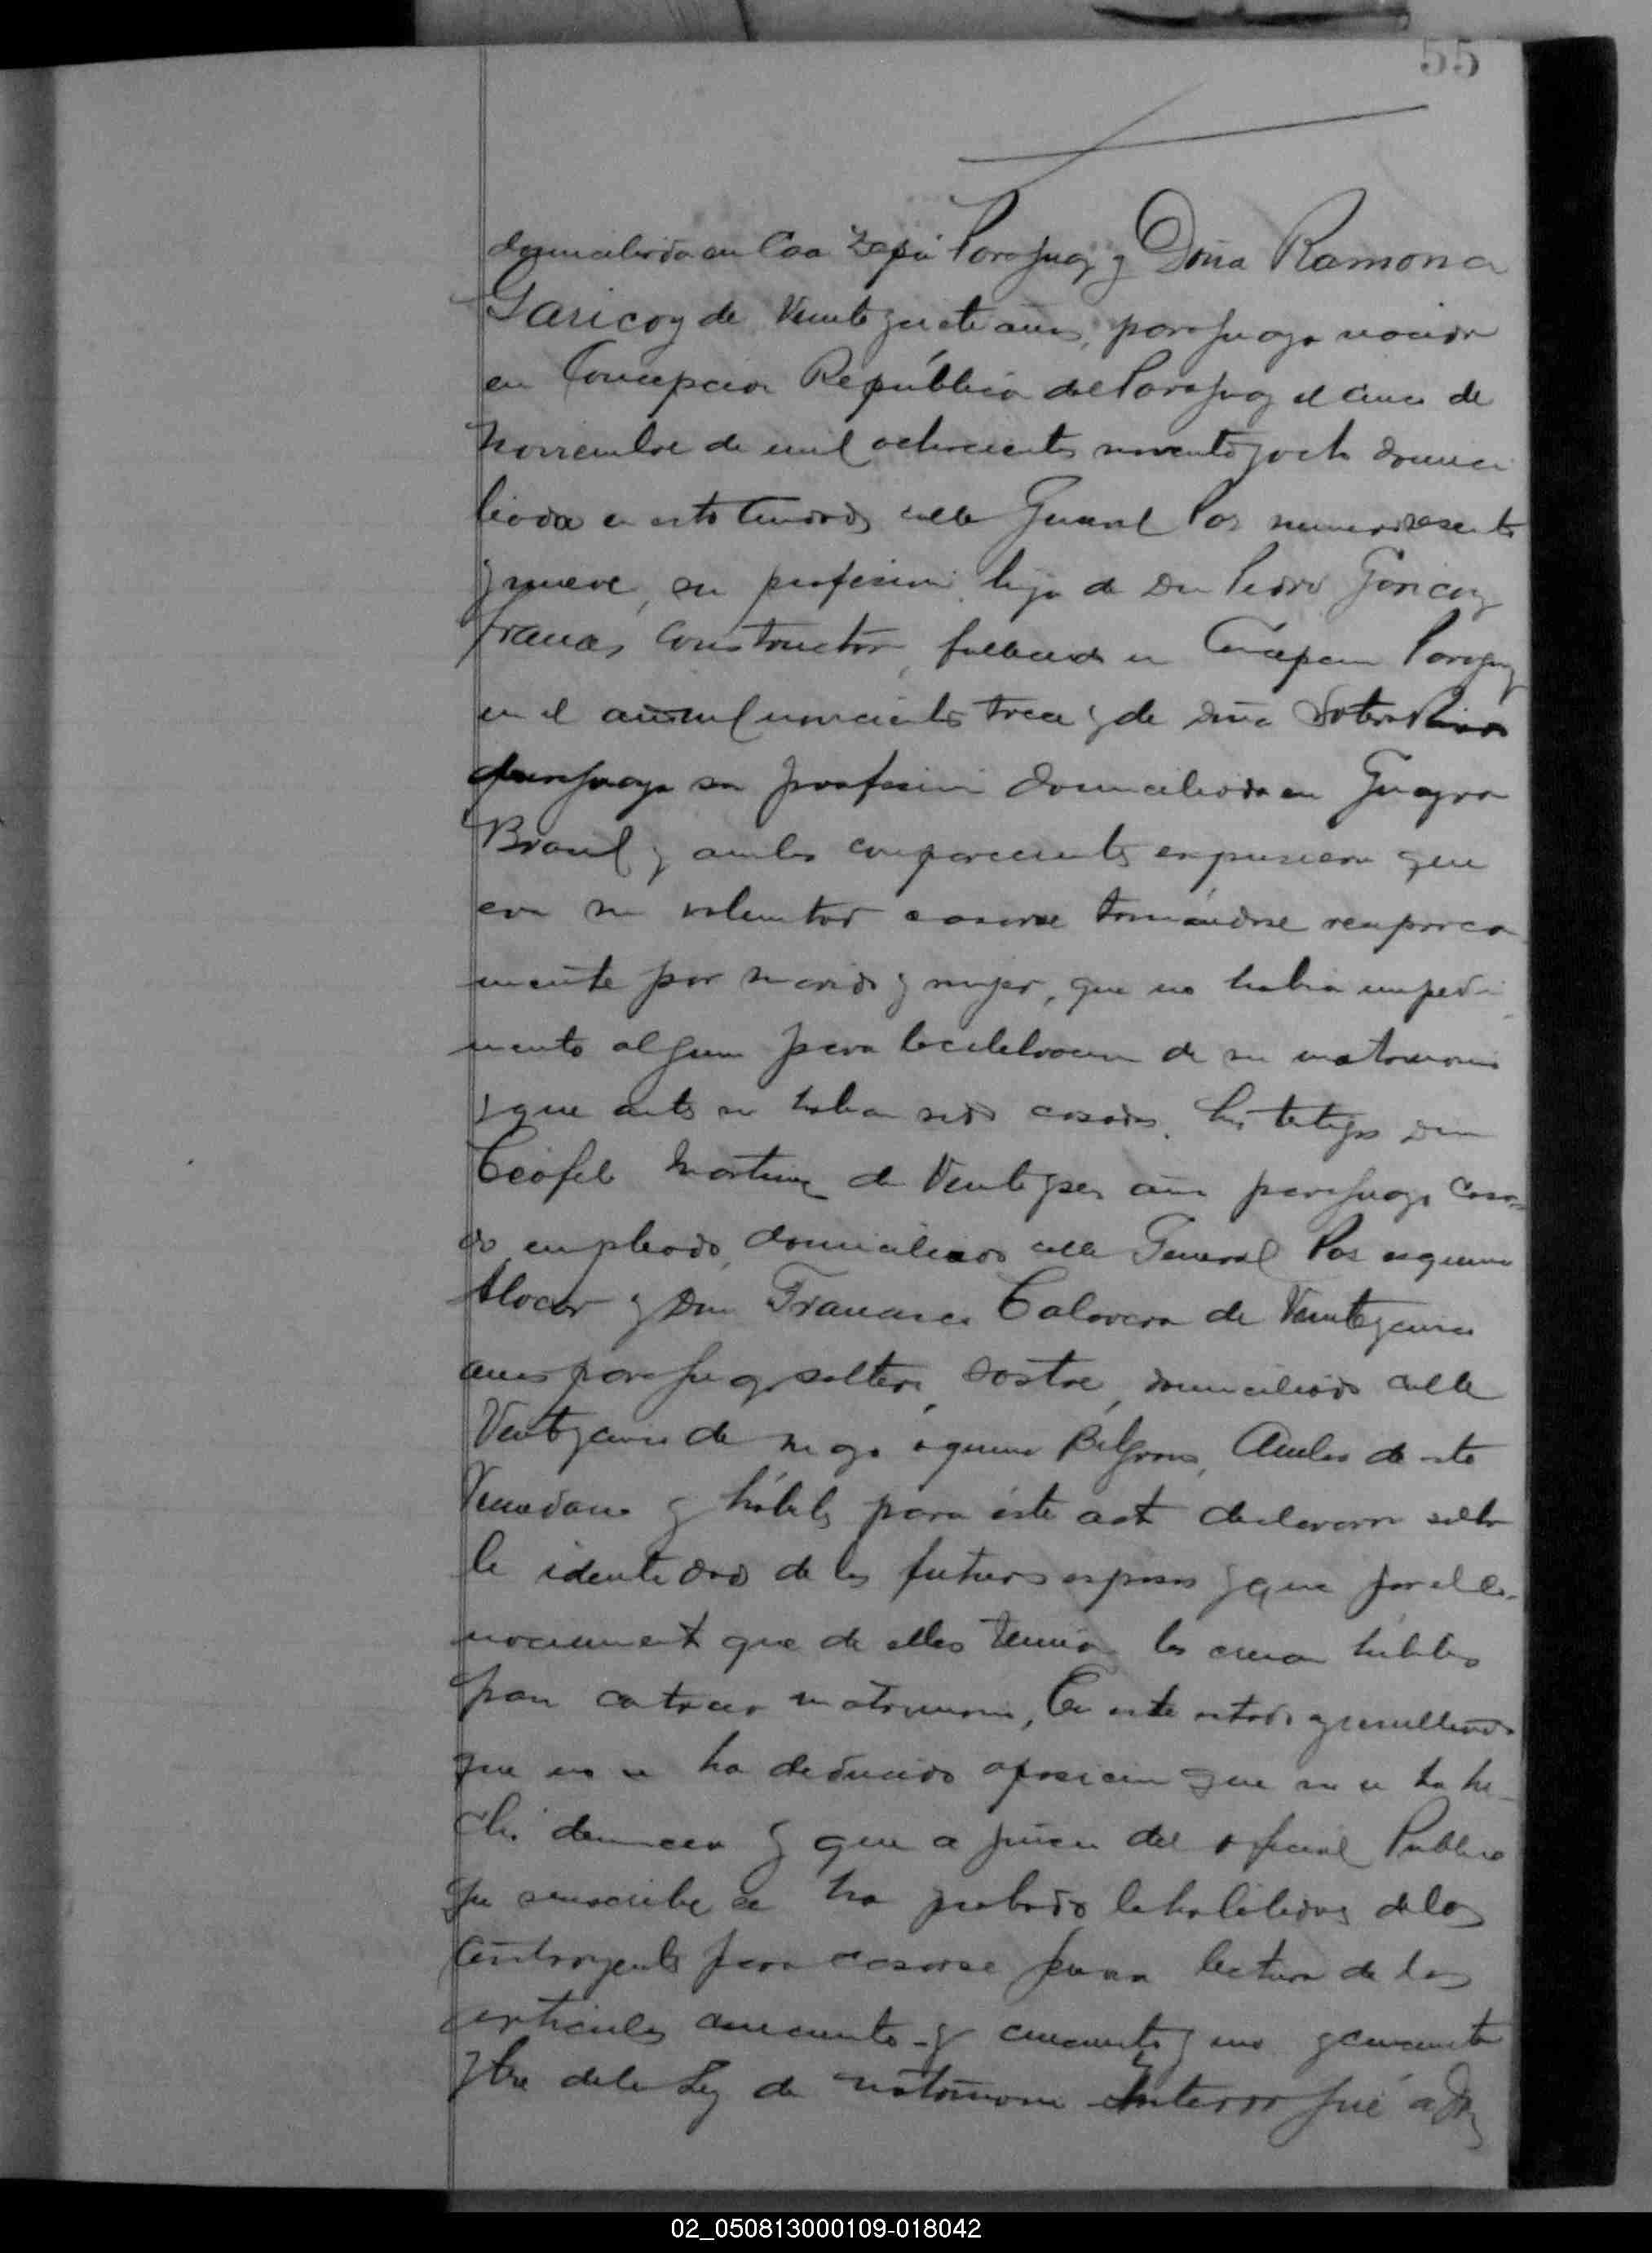 55
domiciliada en Caa Zapá Paraguay y Doña Ramona
Garicoy de Veinte y siete años, paraguaya nacida
en Concepcion República del Paraguay el cinco de
Noviembre de mil ochocientos noventa y ocho domici
liada en esta Ciudad calle General Paz numero sesenta
y nueve, sin profesion hija de Don Pedro Garicoy
frances, Constructor, fallecido en Concepcion Paraguay
en el año mil novecientos trece y de Doña Sotera
paraguaya sin profesion domiciliada en Guayra
Brasil y ambos comparecientes expusieron que
era su voluntad casarse tomándose reciproca
mente por marido y mujer, que no habia impedi
mento alguno para la celebracion de su matrimonio
y que antes no habian sido casados. Los testigos Don
Teófilo Martinez de Veinte y seis años paraguayo casa
do empleado, domiciliado calle General Paz esquina
y Don Francisco Talavera de Veinte y cinco
años paraguayo soltero, sastre, domiciliado calle
Veinte y cinco de Mayo esquina Belgrano, Ambos de este
Vecindario y hábiles para éste acto declararon sobre
la identidad de los futuros esposos y que por el co-
nocimiento que de ellos tenian los creian hábiles
para contraer matrimonio, En este estado y resultando
que no se ha deducido oposicion que no se ha he-
cho denuncia y que a juicio del oficial Publico
que suscribe se ha probado la habilidad de los
contrayentes para casarse previa lectura de los
articulos cincuenta y cincuenta y uno y cincuenta
y tres de la Ley de matrimonio